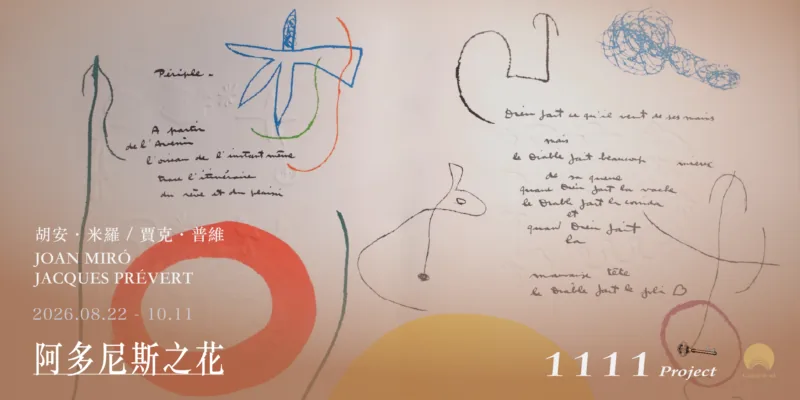 Périple.
A partir
de l'Avenir
l'oiseau de l'instant même
trace l'itinéraire
du rêve et du plaisir
Dieu fait ce qu'il veut de ses mains
mais
le Diable fait beaucoup mieux
de sa queue
quand Dieu fait la vache
le Diable fait la corrida
et
quand Dieu fait
la
mauvaise tête
le Diable fait le joli
胡安・米羅 / 賈克・普維
JOAN MIRÓ
JACQUES PRÉVERT
2026.08.22 - 10.11
阿多尼斯之花
1111 Project